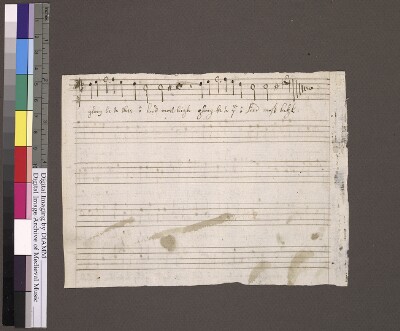 glory be to thee o Lord most high glory be to ye o Lord most high
Digital Imaging by DIAMM
Digital Image Archive of Medieval Music